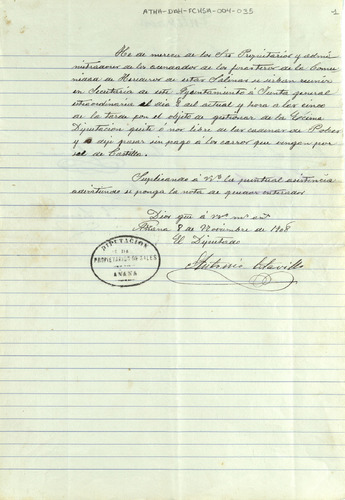 ATHA-DAH-FCHSA-004-035
1
He de merecer de los Sres Propietarios y admi-
nistradores de los arrendador de los forasteros de la Comu-
nidad de Herederos de estas Salinas se sirban reunir
en Secretaria de este Ayuntamiento á Junta general
extraordinaria el dia 8 del actual y hora a las cinco
de la tarde por el objeto de gestionar de la Excma
Diputacion quite ó nos libre de las cadenas de Pobes
y deje pasar sin pago á los carros que vengan por
sal de Castilla.
Suplicando á Vs la puntual asistencia
advirtiendo se ponga la nota de quedar enterados
Dios gue á Vs ms as
Añana 8 de Noviembre de 1908
El Diputado
Antonio Clavillo
DIPUTACION
DE
PROPIETARIOS DE SALES
AÑANA